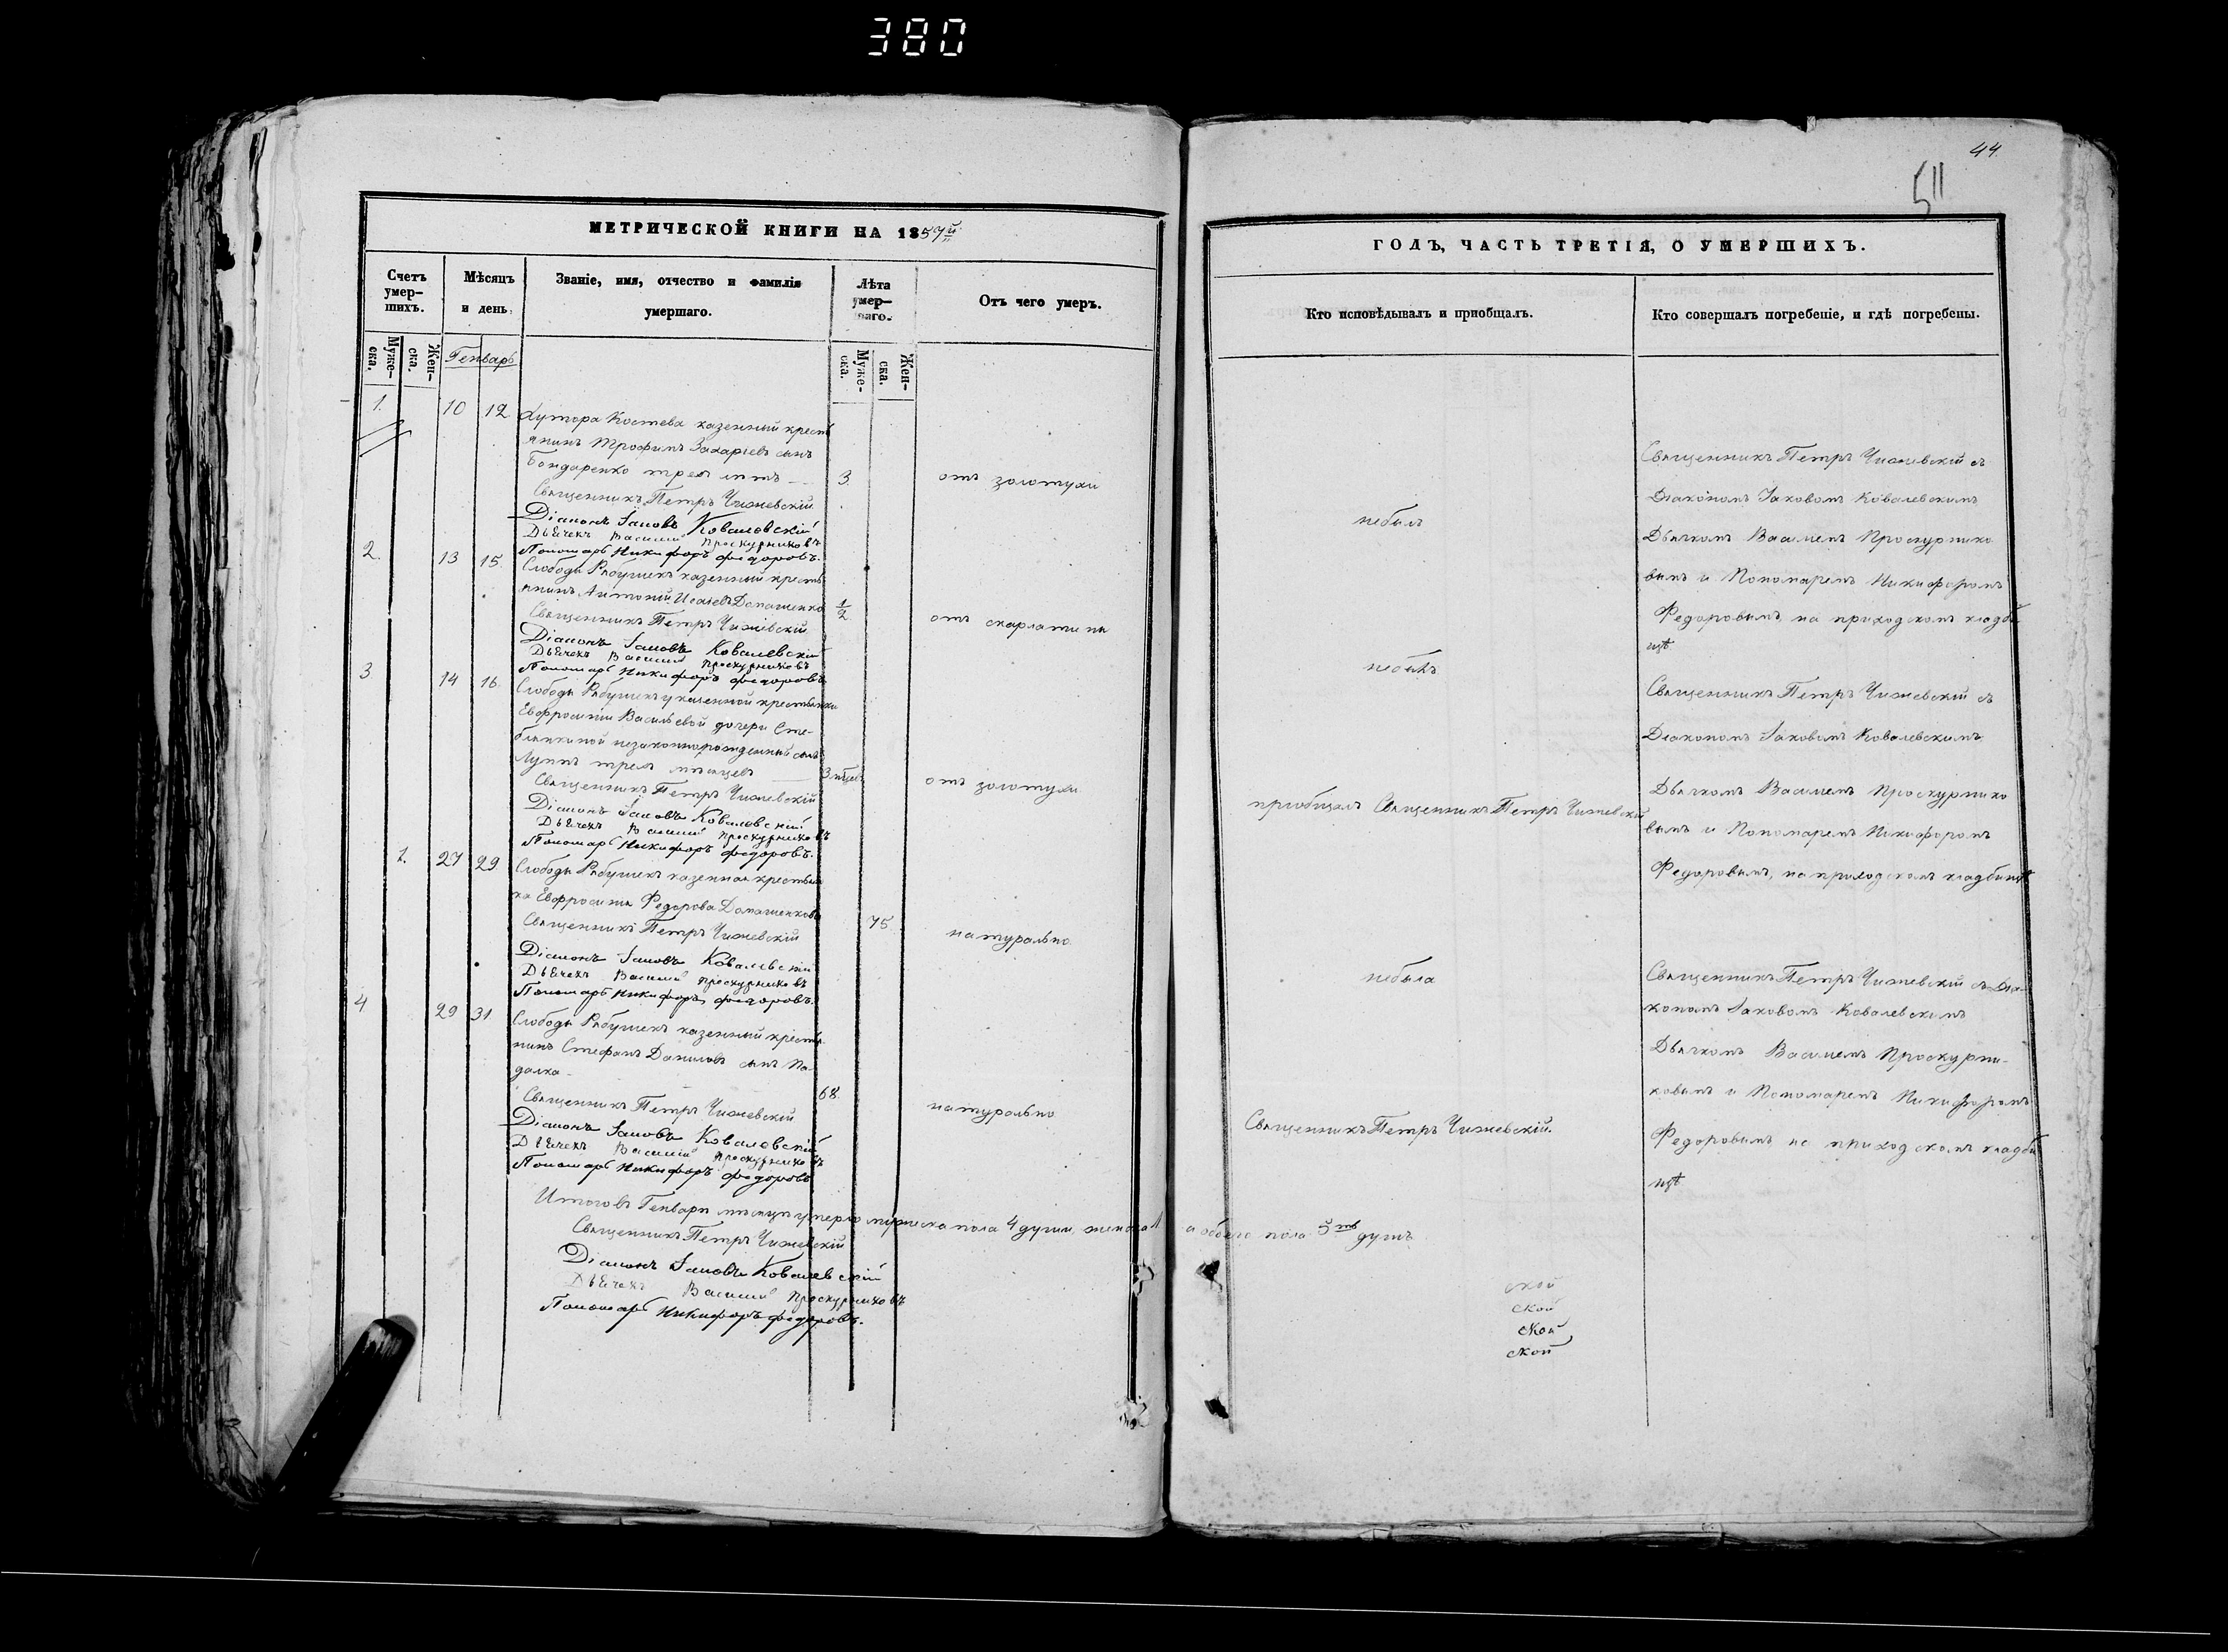 380
44.
511
МЕТРИЧЕСКОЙ КНИГИ НА 1857й
Счетъ умер-шихъ.
Мѣсяцъ и день.
Званіе, имя, отчество и фамилія умершаго.
Лѣта умер-шаго.
Отъ чего умеръ.
Муже-ска.
Жен-ска.
Генварь
Муже-ска.
Жен-ска.
1. 10 12
Хутора Костева казенный кресть
янинъ Трофимъ Захаріевъ сынъ
Бондаренко трехъ лѣтъ 3. отъ золотухи
Священникъ Петръ Чижевскій
Діаконъ Іаковъ Ковалевскій
Дьячекъ Василий Проскурниковъ
Пономарь Никифоръ Федоровъ.
2. 13 15.
Слободы Рябушекъ казенный кресть
янинъ Антоній Исаіевъ Домашенко 1/2 отъ скарлатины
Священникъ Петръ Чижевскій
Діаконъ Іаковъ Ковалевскій
Дьячекъ Василий Проскурниковъ
Пономарь Никифоръ Федоровъ
3 14 16.
Слободы Рябушекъ у казенной крестьянки
Евфросиніи Васильевой дочери Сте-
блянкиной незаконнорожденный сынъ
Луппъ трехъ мѣсяцевъ 3 мѣсяц. отъ золотухи
Священникъ Петръ Чижевскій
Діаконъ Іаковъ Ковалевскій
Дьячекъ Василий Проскурниковъ
Пономарь Никифоръ Федоровъ.
1. 27 29
Слободы Рябушекъ казенная крестьян
ка Евфросинія Федорова Домашенкова 75 натурально
Священникъ Петръ Чижевскій
Діаконъ Іаковъ Ковалевскій
Дьячекъ Василий Проскурниковъ
Пономарь Никифоръ Федоровъ.
4 29 31
Слободы Рябушекъ казенный крестья
нинъ Стефанъ Даниловъ сынъ Па-
далка 68. натурально
Священникъ Петръ Чижевскій
Діаконъ Іаковъ Ковалевскій
Дьячекъ Василий Проскурниковъ
Пономарь Никифоръ Федоровъ
Итого въ Генварѣ мѣсяцѣ умерло мужеска пола 4 души, женска 1 а обоего пола 5ть душъ
Священникъ Петръ Чижевскій
Діаконъ Іаковъ Ковалевскій
Дьячекъ Василий Проскурниковъ
Пономарь Никифоръ Федоровъ.
ГОДЪ, ЧАСТЬ ТРЕТІЯ, О УМЕРШИХЪ.
Кто исповѣдывалъ и приобщалъ.
Кто совершалъ погребеніе, и гдѣ погребены.
небылъ
небылъ
приобщалъ Священникъ Петръ Чижевскій
небыла
Священникъ Петръ Чижевскій.
Священникъ Петръ Чижевскій съ
Діакономъ Іаковомъ Ковалевскимъ
Дьячкомъ Василіемъ Проскурнико
вымъ и Пономаремъ Никифоромъ
Федоровымъ, на приходскомъ кладби
щѣ
Священникъ Петръ Чижевскій съ
Діакономъ Іаковомъ Ковалевскимъ,
Дьячкомъ Василіемъ Проскурнико
вымъ и Пономаремъ Никифоромъ
Федоровымъ, на приходскомъ кладбищѣ
Священникъ Петръ Чижевскій съ Діа-
кономъ Іаковомъ Ковалевскимъ
Дьячкомъ Василіемъ Проскурни-
ковымъ и Пономаремъ Никифоромъ
Федоровымъ на приходскомъ кладби
щѣ
ской
ской
ской
ской